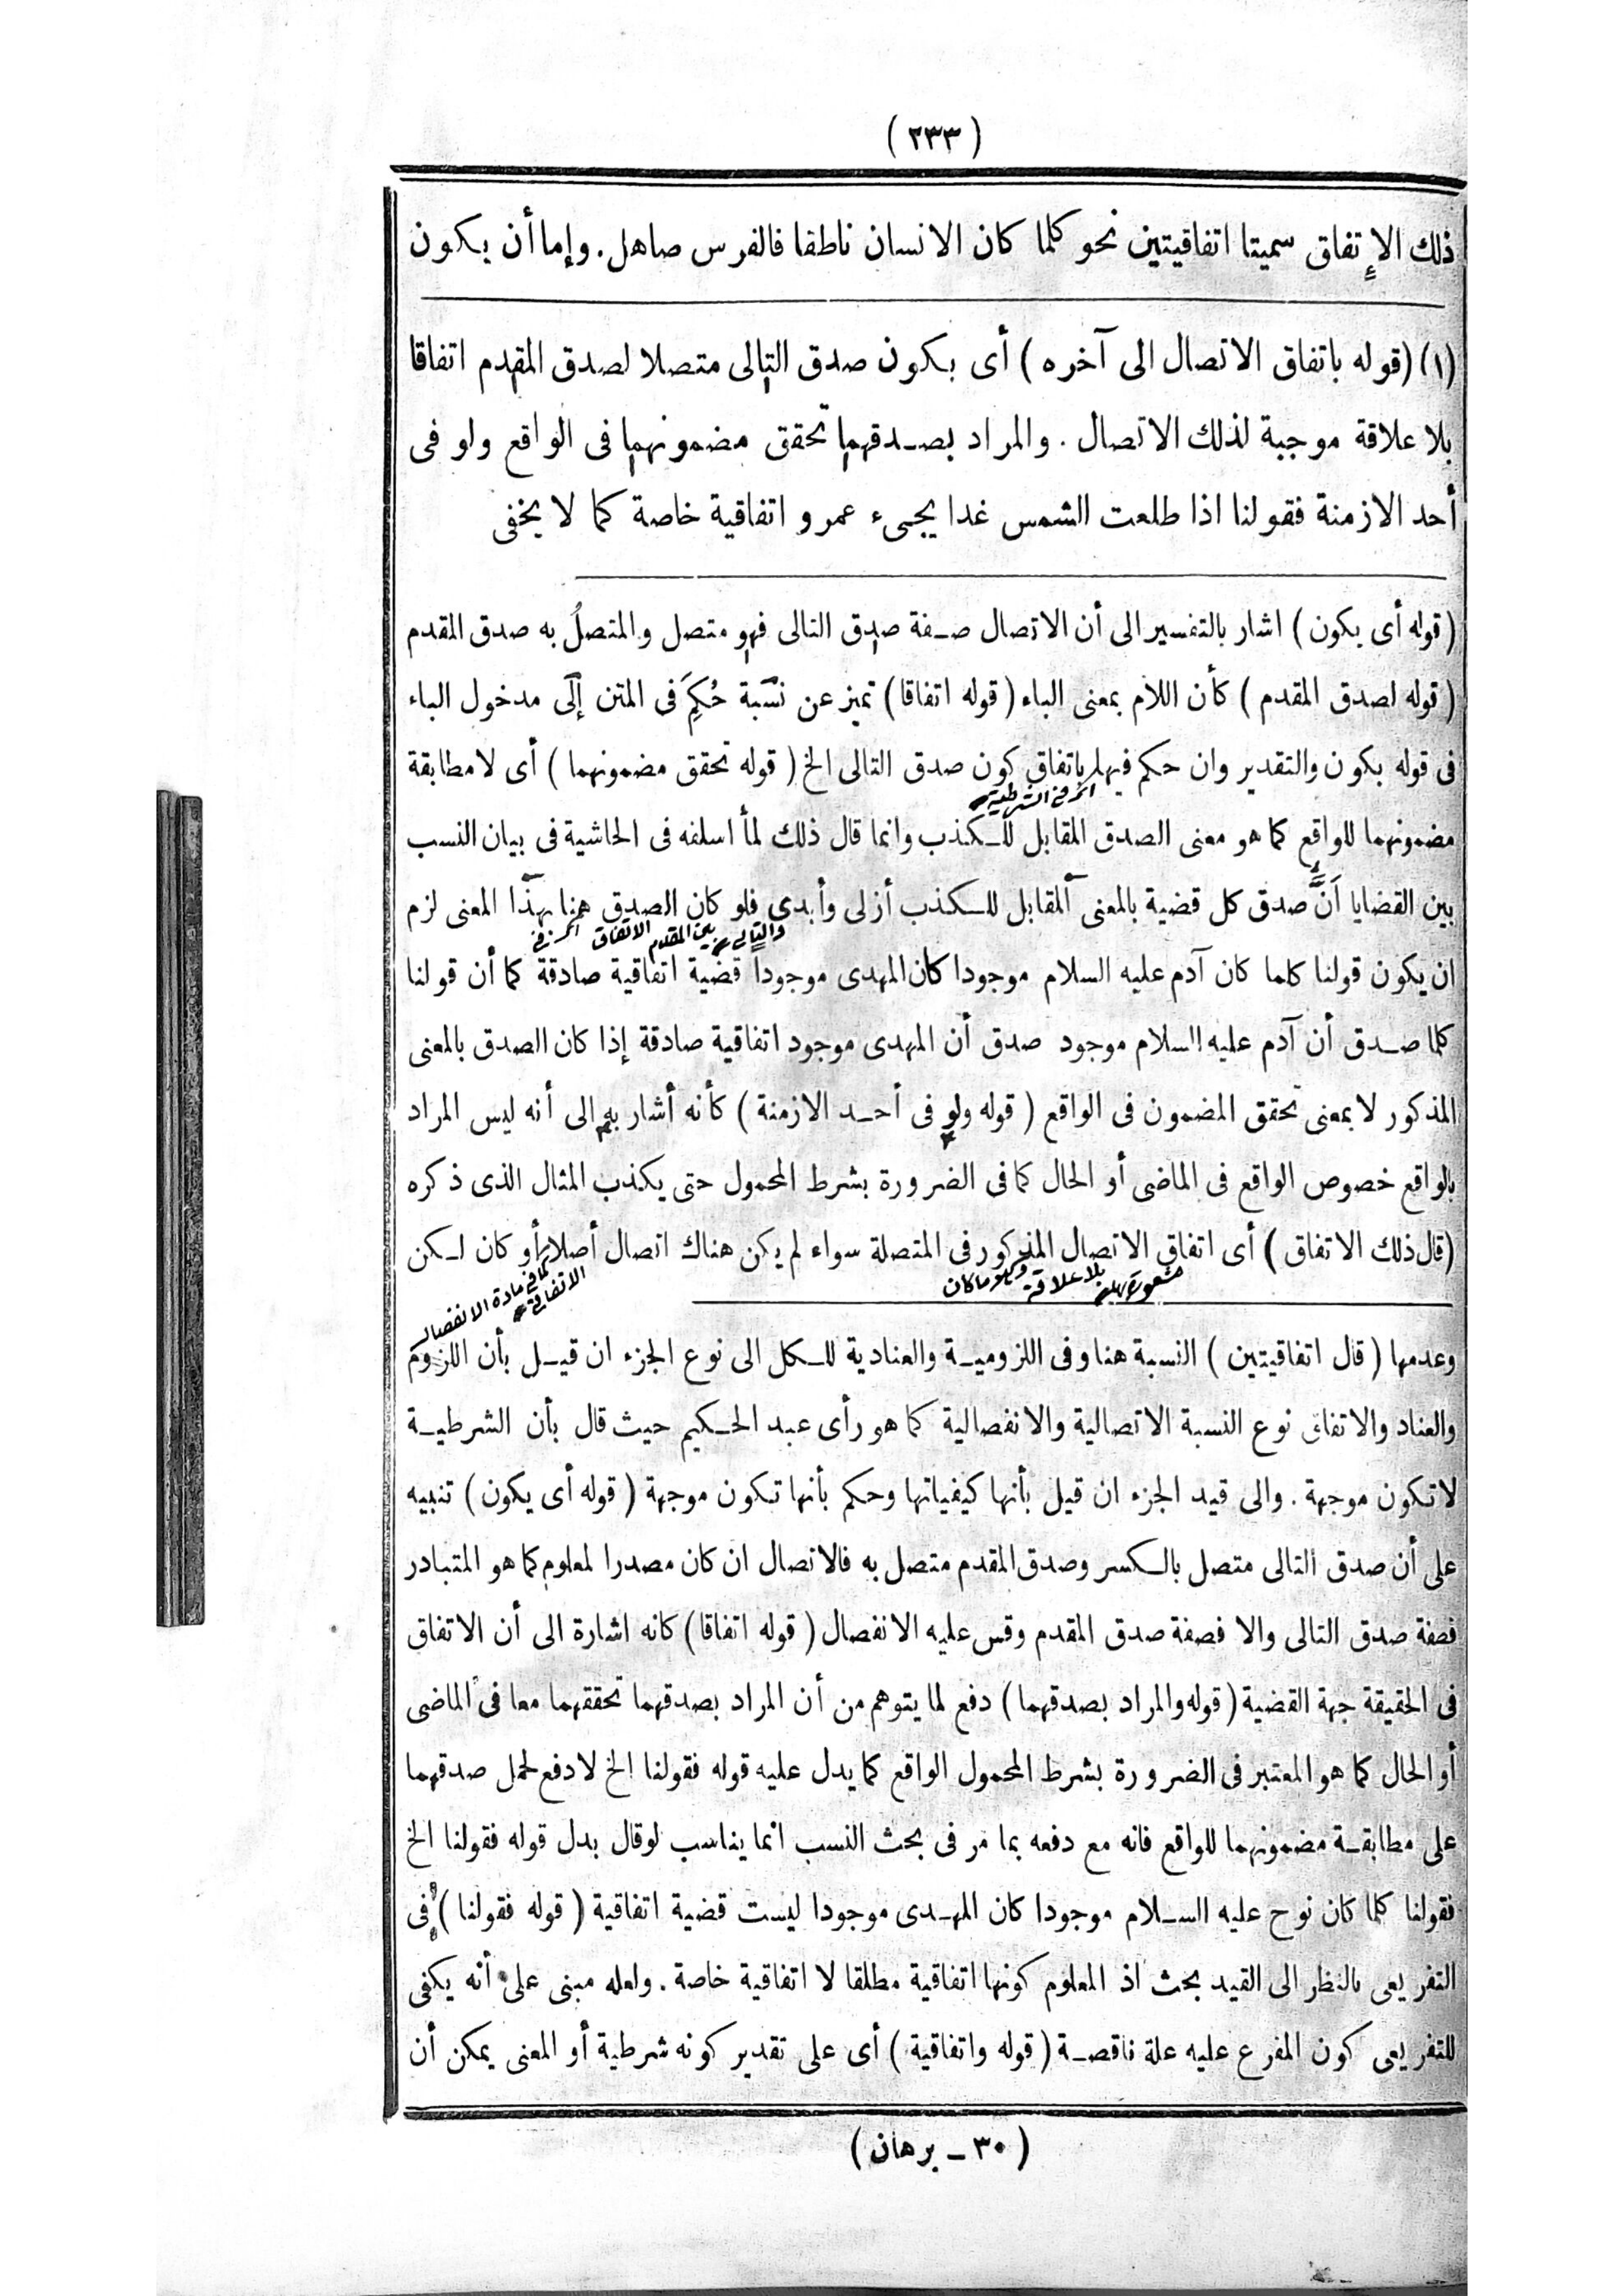 (٢٣٣)
ذلك الإتفاق سميتا اتفاقيتين نحو كلما كان الانسان ناطقا فالفرس صاهل. وإما أن يكون
(١) (قوله باتفاق الاتصال الى آخره) أى بكون صدق التالى متصلا لصدق المقدم اتفاقا
بلا علاقة موجبة لذلك الاتصال. والمراد بصدقهما تحقق مضمونهما فى الواقع ولو فى
أحد الازمنة فقولنا اذا طلعت الشمس غدا يجىء عمرو اتفاقية خاصة كما لا يخفى
(قوله أى بكون) اشار بالتفسير الى أن الاتصال صفة صدق التالى فهو متصل والمتصلُ به صدق المقدم
(قوله لصدق المقدم) كأن اللام بمعنى الباء (قوله اتفاقا) تميز عن نسبة حُكِمَ فى المتن إلى مدخول الباء
فى قوله بكون والتقدير وان حكم فيها باتفاق كون صدق التالى الخ (قوله تحقق مضمونهما) أى لا مطابقة
مضمونهما للواقع كما هو معنى الصدق المقابل للكذب وانما قال ذلك لما اسلفه فى الحاشية فى بيان النسب
بين القضايا أنَّ صدق كل قضية بالمعنى المقابل للكذب أزلى وأبدى فلو كان الصدق هنا بهذا المعنى لزم
والتالى بين المقدم الاتفاق
ان يكون قولنا كلما كان آدم عليه السلام موجودا كان المهدى موجوداً قضية اتفاقية صادقة كما أن قولنا
كلما صدق أن آدم عليه السلام موجود صدق أن المهدى موجود اتفاقية صادقة إذا كان الصدق بالمعنى
المذكور لا بمعنى تحقق المضمون فى الواقع (قوله ولو فى أحد الازمنة) كأنه أشار به الى أنه ليس المراد
بالواقع خصوص الواقع فى الماضى أو الحال كما فى الضرورة بشرط المحمول حتى يكذب المثال الذى ذكره
(قال ذلك الاتفاق) أى اتفاق الاتصال المذكور فى المتصلة سواء لم يكن هناك اتصال أصلا أو كان لكن
بلا علاقة
كما فى مادة الانفصال
الاتفاقى
وعدمها (قال اتفاقيتين) النسبة هنا وفى اللزومية والعنادية للكل الى نوع الجزء ان قيل بأن اللزوم
والعناد والاتفاق نوع النسبة الاتصالية والانفصالية كما هو رأى عبد الحكيم حيث قال بأن الشرطية
لا تكون موجهة. والى قيد الجزء ان قيل بأنها كيفياتها وحكم بأنها تكون موجهة (قوله أى يكون) تنبيه
على أن صدق التالى متصل بالكسر وصدق المقدم متصل به فالاتصال ان كان مصدرا لمعلوم كما هو المتبادر
فصفة صدق التالى والا فصفة صدق المقدم وقس عليه الانفصال (قوله اتفاقا) كانه اشارة الى أن الاتفاق
فى الحقيقة جهة القضية (قوله والمراد بصدقهما) دفع لما يتوهم من أن المراد بصدقهما تحققهما معا فى الماضى
أو الحال كما هو المعتبر فى الضرورة بشرط المحمول الواقع كما يدل عليه قوله فقولنا الخ لا دفع لحمل صدقهما
على مطابقة مضمونهما للواقع فانه مع دفعه بما مر فى بحث النسب انما يناسب لو قال بدل قوله فقولنا الخ
فقولنا كلما كان نوح عليه السلام موجودا كان المهدى موجودا ليست قضية اتفاقية (قوله فقولنا) فى
التفريعى بالنظر الى القيد بحث اذ المعلوم كونها اتفاقية مطلقا لا اتفاقية خاصة. ولعله مبنى على أنه يكفى
للتفريعى كون المفرع عليه علة ناقصة (قوله واتفاقية) أى على تقدير كونه شرطية أو المعنى يمكن أن
(٣٠ - برهان)